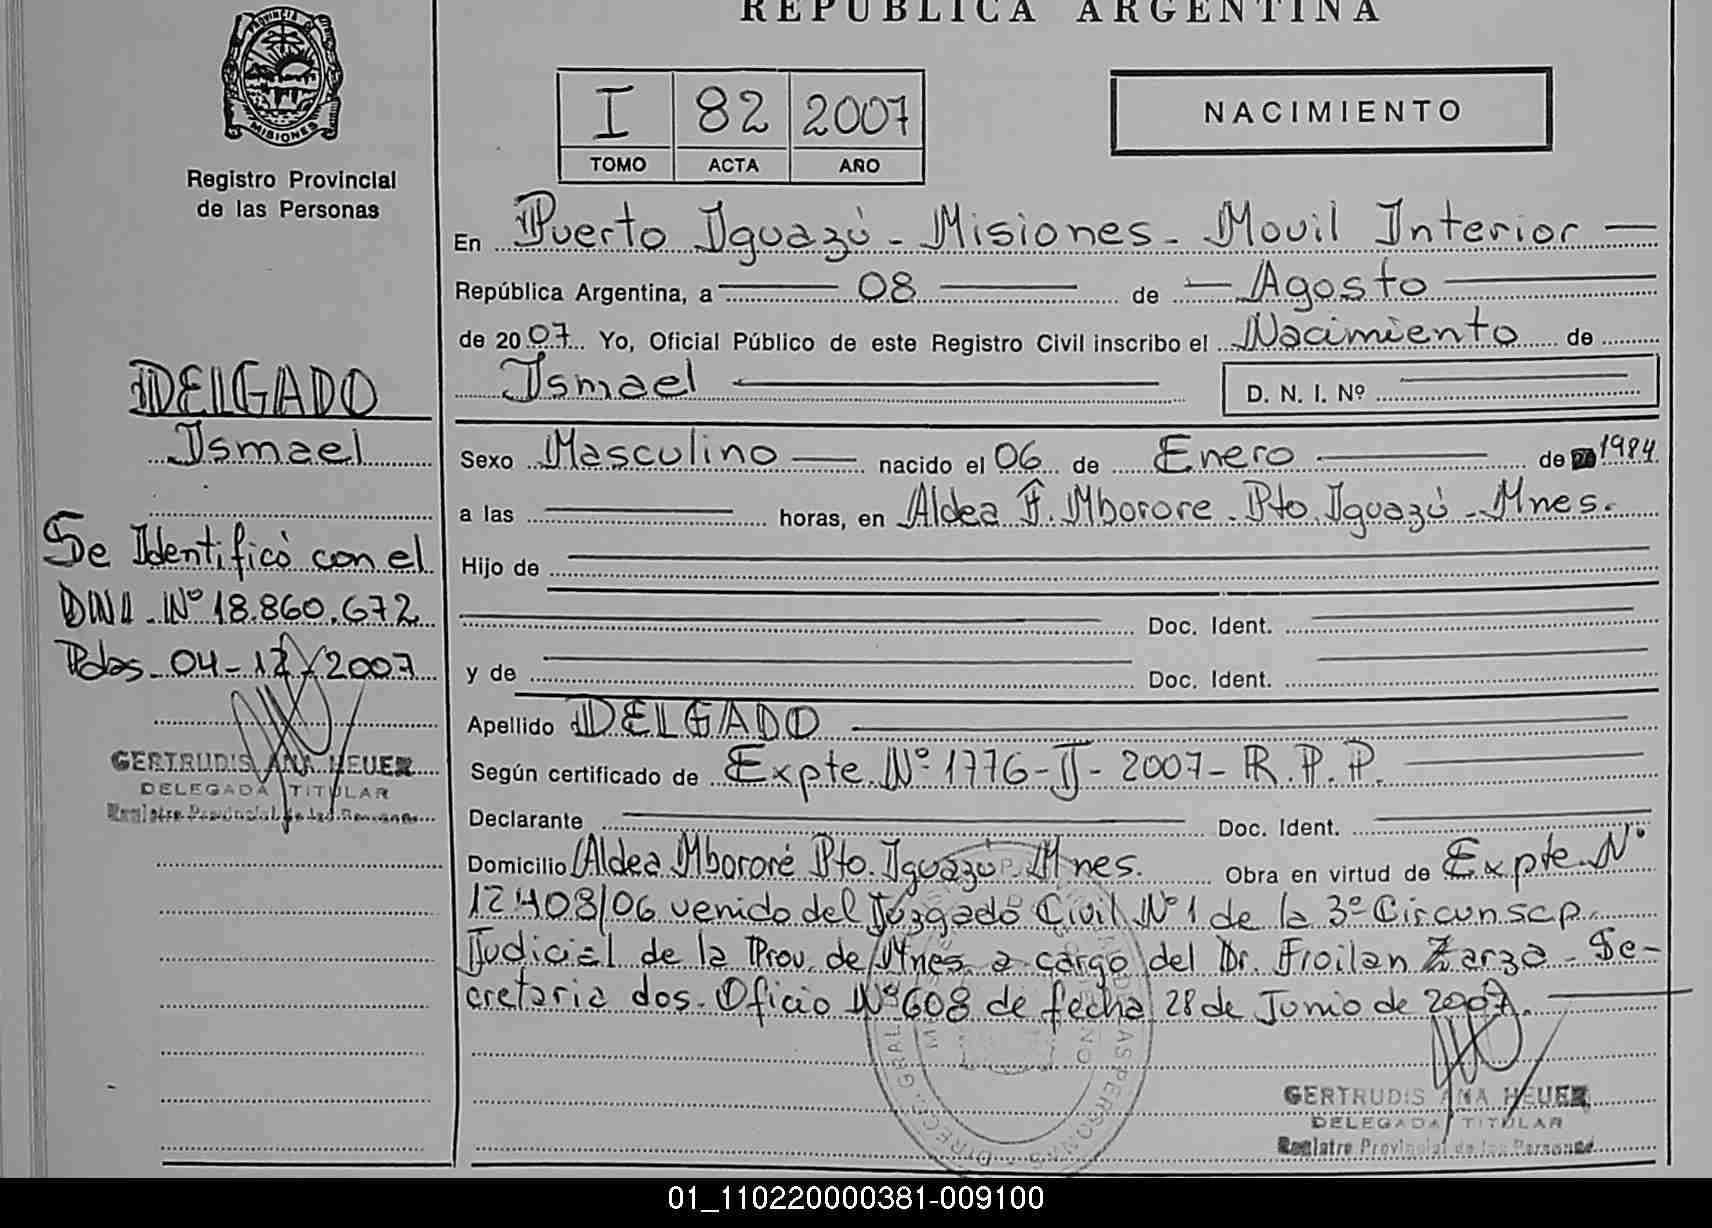 REPUBLICA ARGENTINA
PROVINCIA DE
MISIONES
Registro Provincial
de las Personas
I 82 2007
TOMO ACTA AÑO
NACIMIENTO
En Puerto Iguazú - Misiones - Movil Interior —
República Argentina, a 08 de Agosto
de 2007 Yo, Oficial Público de este Registro Civil inscribo el Nacimiento de
Ismael D. N. I. Nº
DELGADO
Ismael
Se Identificó con el
DNI Nº 18.860.672
Pdas 04-12-2007
GERTRUDIS ANA HEUER
DELEGADA TITULAR
Registro Provincial de las Personas
Sexo Masculino nacido el 06 de Enero de 1984
a las horas, en Aldea F. Mborore Pto. Iguazú - Mnes.
Hijo de
Doc. Ident.
y de Doc. Ident.
Apellido DELGADO
Según certificado de Expte. Nº 1776-I-2007-R.P.P.
Declarante Doc. Ident.
Domicilio Aldea Mbororé Pto. Iguazú Mnes. Obra en virtud de Expte. Nº
12408/06 venido del Juzgado Civil Nº 1 de la 3º Circunscp.
Judicial de la Prov. de Mnes a cargo del Dr. Froilan Zarza - Se-
cretaria dos. Oficio Nº 608 de fecha 28 de Junio de 2007.
GERTRUDIS ANA HEUER
DELEGADA TITULAR
Registro Provincial de las Personas
01_110220000381-009100